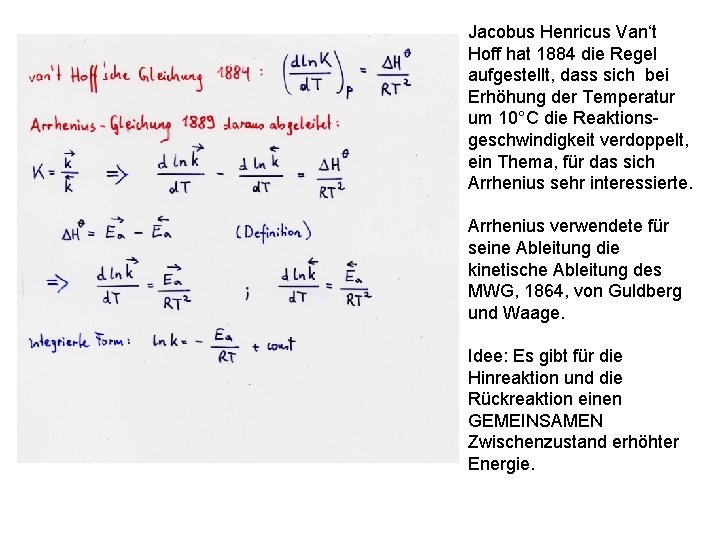 van't Hoff'sche Gleichung 1884 : (dlnK/dT)p = ΔH⁰/RT²
Arrhenius-Gleichung 1889 daraus abgeleitet:
K = k→/k← ⇒ d ln k→/dT - d ln k←/dT = ΔH⁰/RT²
ΔH⁰ = Ea→ - Ea← (Definition)
⇒ d ln k→/dT = Ea→/RT² ; d ln k←/dT = Ea←/RT²
Integrierte Form: ln k = - Ea/RT + const
Jacobus Henricus Van‘t
Hoff hat 1884 die Regel
aufgestellt, dass sich bei
Erhöhung der Temperatur
um 10°C die Reaktions-
geschwindigkeit verdoppelt,
ein Thema, für das sich
Arrhenius sehr interessierte.
Arrhenius verwendete für
seine Ableitung die
kinetische Ableitung des
MWG, 1864, von Guldberg
und Waage.
Idee: Es gibt für die
Hinreaktion und die
Rückreaktion einen
GEMEINSAMEN
Zwischenzustand erhöhter
Energie.